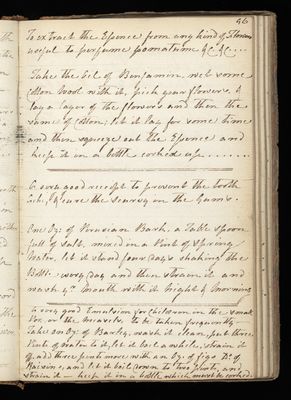 56
To extract the Essence from any kind of Flowers
useful to perfume pomatums &c &c ...
Take the Oil of Benjamin, wet some
Cotton Wool with it, pick your flowers, &
lay a layer of the flowers and then the
same of Cotton; let it lay for some time
and then squeeze out the Essence and
keep it in a bottle corked up .......
A very good receipt to prevent the tooth
ach, & cure the scurvy on the Gums.
One Oz: of Peruvian Bark, a Table spoon
full of salt, mixed in a Pint of Spring
Water, let it stand four days shaking the
Bottle every day and then strain it and
wash yr. Mouth with it Night & Morning
A very good Emulsion for Children in the small
Pox, or the Measels, to be taken frequently
Take an Oz: of Barley, wash it clean, put three
Pints of water to it, let it boil a while, strain it
off, add three pints more with an Oz: of figs Do. of
Raisins, and let it boil down to two pints, and
strain it — keep it in a bottle, which must be corked.